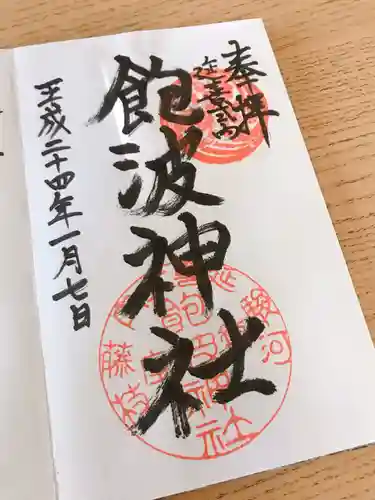 奉拝
延喜式内
飽波神社
平成二十四年一月七日
駿河
藤枝